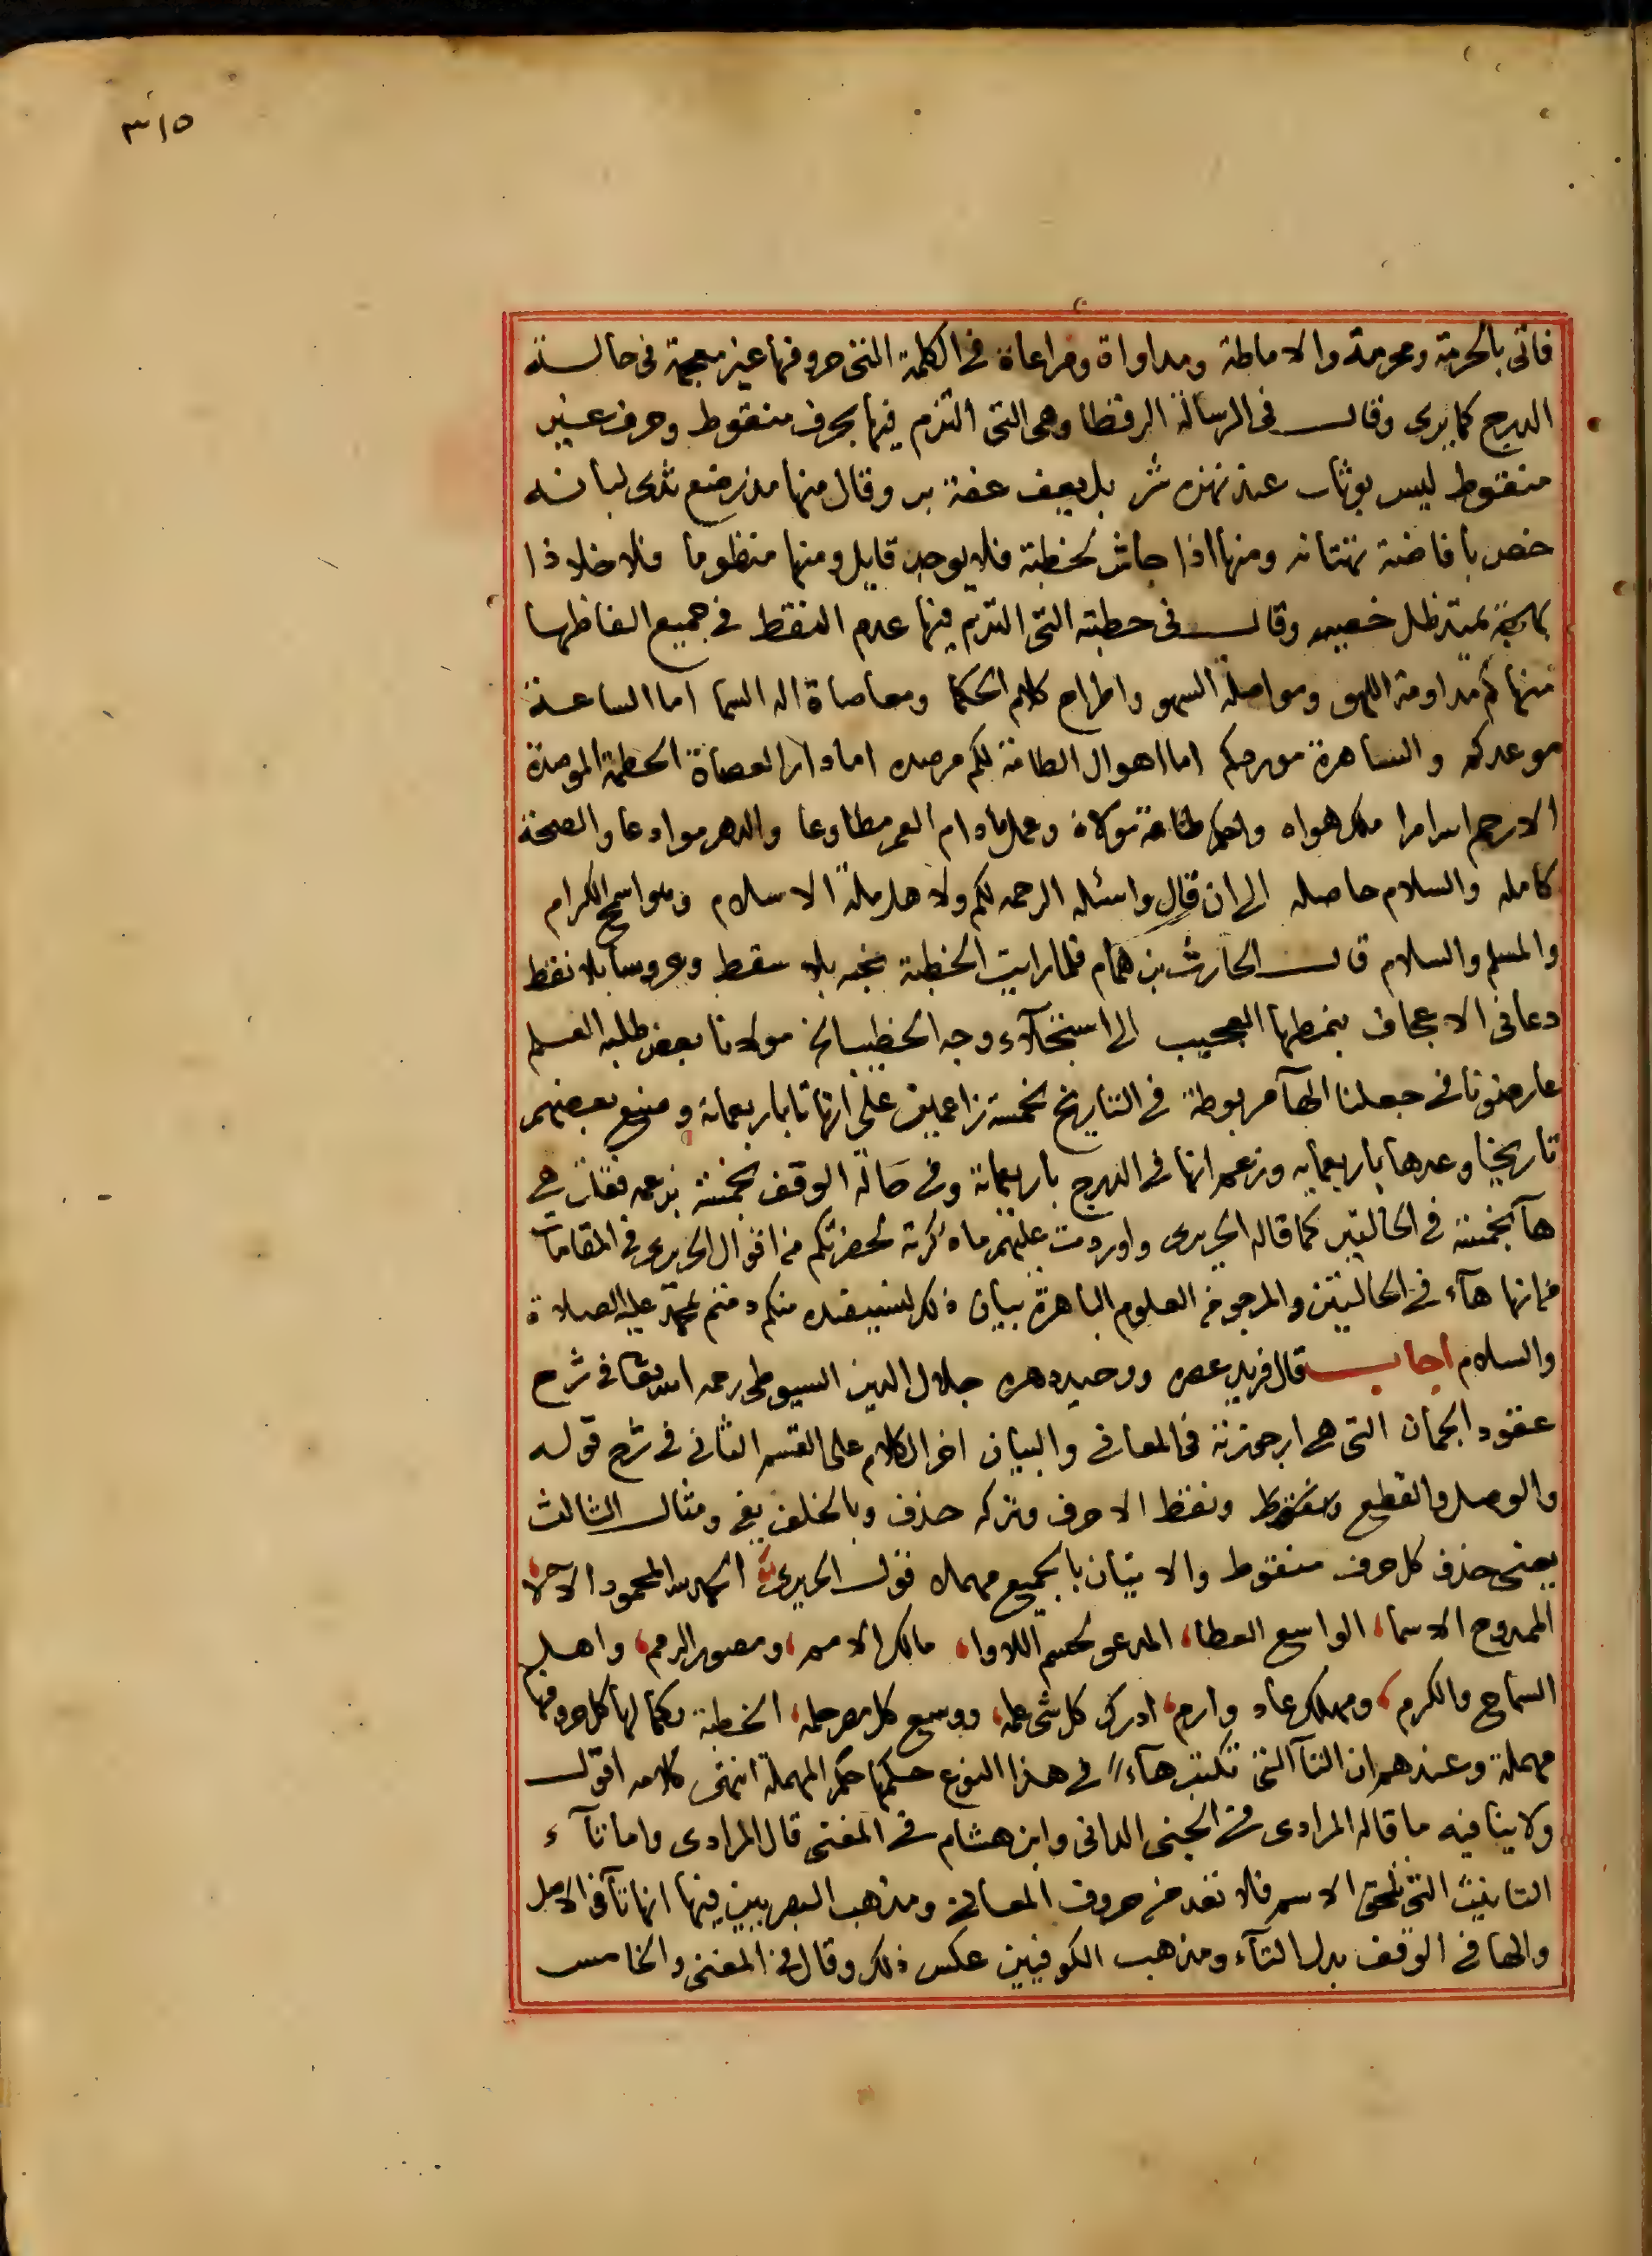 ٣١٥
فاتى بالحرمة ومحرمة والاماطة ومداواة ومراعاة في الكلمة التى حروفها غير معجمة في حالة
الدرج كما يرى وقال فى الرسالة الرقطا وهى التى التزم فيها بحرف منقوط وحرف غير
منقوط ليس بوثاب عند نهزة شر بل يعف عفة بر وقال منها مذ رضع ثدى لبانه
خص بافاضة تهتانه ومنها اذا جاش لخطبة فلا يوجد قايل ومنها منظوما فلا خلا ذا
بهجة يمتد ظل خصبه وقال فى خطبته التى التزم فيها عدم النقط في جميع الفاظها
منها كم مداومة اللهو ومواصلة السهو واطراح كلام الحكما ومعاصاة اله السما اما الساعة
موعدكم والساهرة موردكم اما اهوال الطامة لكم مرصده اما دار العصاة الحطمة الموصدة
الا رحم الله امرا ملك هواه واحكم طاعة مولاه وعمل مادام العمر مطاوعا والدهر موادعا والصحة
كامله والسلام حاصله الى ان قال واسئله الرحمه لكم ولاهل ملة الاسلام وهو اسمح الكرام
والمسلم والسلام قال الحارث بن همام فلما رايت الخطبة نخبه بلا سقط وعروسا بلا نقط
دعانى الاعجاف بنمطها العجيب الى استجلآء وجه الخطيب مولانا بعض طلبه العلم
عارضونا في جعلنا الهآ مربوطة في التاريخ بخمسة زاعمين على انها تا باربعمائة ومنع بعضهم
تاريخيا وعدها باربعمايه وزعم انها فى الدرج باربعمائة وفى حالة الوقف بخمسة بزعمه فقلت هي
هآ بخمسة في الحالتين كما قاله الحريرى واوردت عليهم ما ذكرته لحضرتكم من اقوال الحريرى في المقامات
فانها هآء في الحالتين والمرجو من العلوم الباهرة بيان ذلك لنستفيده منكم دمتم بمحمد عليه الصلاة
والسلام اجاب قال فريد عصره ووحيد دهره جلال الدين السيوطى رحمه الله تعالى فى شرح
عقود الجمان التى هى ارجوزته في المعاني والبيان اخر الكلام على القسم الثاني في شرح قوله
والوصل والقطع ونقط الاحرف وتركه حذف وبالخلف يفى ومثال الثالث
يعنى حذف كل حرف منقوط والاتيان بالجميع مهملا قول الحريرى الحمد لله المحمود الآلا
الممدوح الاسما، الواسع العطا، المدعو لحسم اللاوا، مالك الامم، ومصور الرمم، واهل
السماح والكرم، ومهلك عاد وارم، ادرك كل شى علمه، ووسع كل مصر حلمه، الخطبة بكمالها كل حروفها
مهملة وعندهم ان التآ التى تكتب هآء في هذا النوع حكمها حكم المهملة انتهى كلامه اقول
ولا ينافيه ما قاله المرادى فى الجنى الدانى وابن هشام في المغنى قال المرادى واما تآء
التانيث التى تلحق الاسم فلا تعد من حروف المعاني ومذهب البصريين فيها انها تآ في الاصل
والها في الوقف بدل التآء ومذهب الكوفيين عكس ذلك وقال في المغنى والخامس